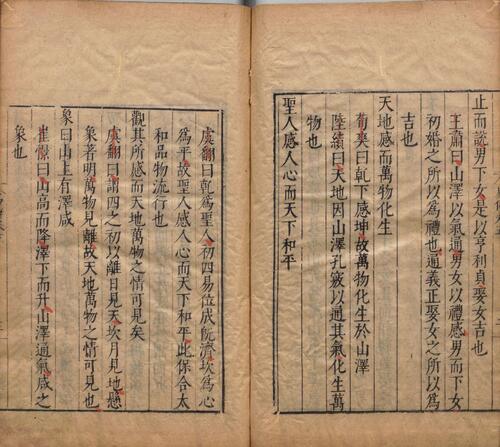 止而說男下女是以亨利貞娶女吉也
王肅曰山澤以氣通男女以禮感男而下女
初婚之所以為禮也通義正娶女之所以為
吉也
天地感而萬物化生
荀爽曰乾下感坤故萬物化生於山澤
陸績曰天地因山澤孔竅以通其氣化生萬
物也
聖人感人心而天下和平
虞翻曰乾為聖人初四易位成旣濟坎為心
為平故聖人感人心而天下和平此保合太
和品物流行也
觀其所感而天地萬物之情可見矣
虞翻曰謂四之初以離日見天坎月見地懸
象著明萬物見離故天地萬物之情可見也
象曰山上有澤咸
崔憬曰山高而降澤下而升山澤通氣咸之
象也